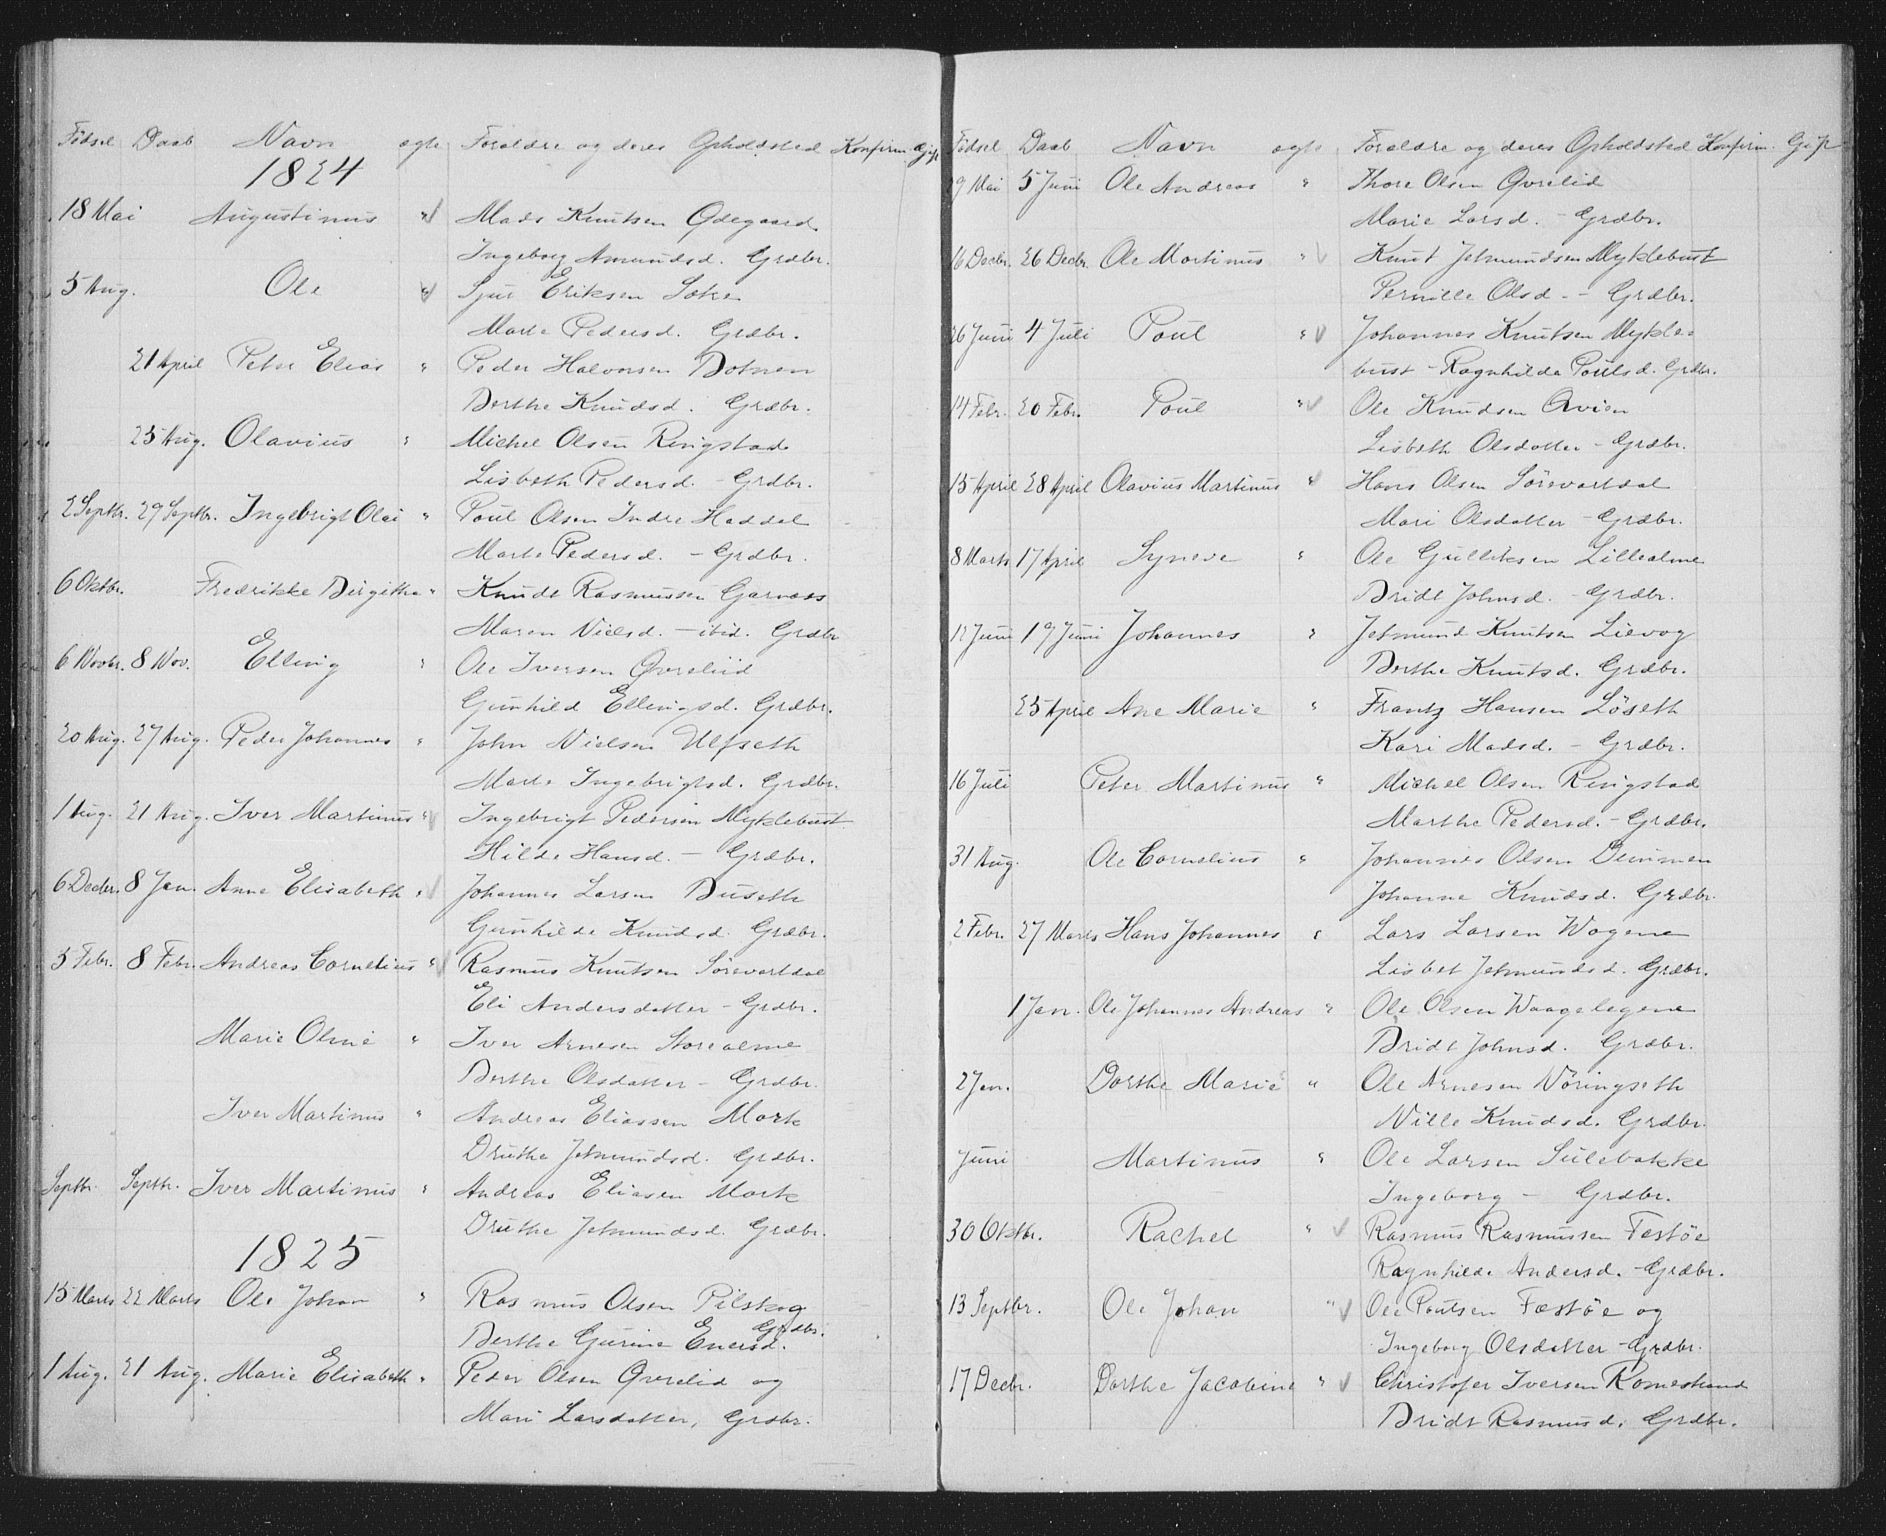 Fødsel Daab Navn ægte Forældre og deres Opholdsted Konfirm. Gift
1824
18 Mai Augustinus " Mads Knutsen Ødegaard
Ingeborg Amundsd. Grdbr.
5 Aug. Ole " Sjur Eriksen Sætre
Marte Pedersd. Grdbr.
21 April Peter Elias " Peder Halvorsen Botnen
Berthe Knudsd. Grdbr.
25 Aug. Olavius " Michel Olsen Ringstad
Lisbeth Pedersd. - Grdbr.
2 Septbr. 29 Septbr. Ingebrigt Olai " Poul Olsen Indre Haddal
Marte Pedersd. - Grdbr.
6 Oktbr. Fredrikke Birgitha " Knudt Rasmussen Garnæs
Maren Nielsd. - ibid. Grdbr
6 Novbr. 8 Nov. Elling " Ole Iversen Øvreliid
Gunhild Ellingsd. Grdbr.
20 Aug. 27 Aug. Peder Johannes " John Nielsen Ulfseth
Marte Ingebrigtsd. Grdbr.
1 Aug. 21 Aug. Iver Martinus " Ingebrigt Pedersen Myklebust
Hilde Hansd. - Grdbr.
6 Decbr. 8 Jan. Anne Elisabeth " Johannes Larsen Buseth
Gunhilde Knudsd. Grdbr.
5 Febr. 8 Febr. Andreas Cornelius " Rasmus Knutsen Sørevartdal
Eli Andersdatter - Grdbr.
Marie Oline " Iver Arnesen Storealme
Berthe Olsdatter - Grdbr.
Iver Martinus " Andreas Eliassen Mork
Druthe Jetmundsd. Grdbr.
Septbr. Septbr. Iver Martinus " Andreas Eliasen Mork
Druthe Jetmundsd. Grdbr.
1825
15 Marts 22 Marts Ole Johan " Rasmus Olsen Pilskog
Grdbr.
Berthe Gurine Enersd.
1 Aug. 21 Aug. Marie Elisabeth " Peder Olsen Øvrelid og
Mari Larsdatter, Grdbr.
Fødsel Daab Navn ægte Forældre og deres Opholdsted Konfirm. Gift
19 Mai 5 Juni Ole Andreas " Thore Olsen Øvrelid
Marie Larsd. - Grdbr.
16 Decbr. 26 Decbr. Ole Martinus " Knut Jetmundsen Myklebust
Pernille Olsd. - Grdbr.
26 Juni 4 Juli Poul " Johannes Knutsen Mykle-
bust - Ragnhilde Poulsd. Grdbr.
14 Febr. 20 Febr. Poul " Ole Knudsen Qvien
Lisbeth Olsdatter - Grdbr.
15 April 28 April Olavius Martinus " Hans Olsen Sørevartdal
Mari Olsdatter - Grdbr.
8 Marts 17 April Syneve " Ole Gulliksen Lillealme
Bridt Johnsd. - Grdbr.
12 Juni 19 Juni Johannes " Jetmund Knutsen Lievog
Berthe Knutsd. Grdbr.
25 April Ane Marie " Frantz Hansen Løseth
Kari Madsd. - Grdbr.
16 Juli Peter Martinus " Michel Olsen Ringstad
Marthe Pedersd. - Grdbr.
31 Aug. Ole Cornelius " Johannes Olsen Dimmen
Johanne Knudsd. Grdbr.
2 Febr. 27 Marts Hans Johannes " Lars Larsen Wogene
Lisbet Jetmundsd. Grdbr.
1 Jan. Ole Johannes Andreas " Ole Olsen Waagelegene
Bridt Johnsd. Grdbr.
2 Jan. Dorthe Marie " Ole Arnesen Nøringseth
Nille Knudsd. Grdbr.
Juni Martinus " Ole Larsen Sulebakke
Ingeborg - Grdbr.
30 Oktbr. Rachel " Rasmus Rasmussen Festøe
Ragnhilde Andersd. - Grdbr.
13 Septbr. Ole Johan " Ole Poulsen Fæstøe og
Ingeborg Olsdatter - Grdbr.
17 Decbr. Dorthe Jacobine " Christofer Iversen Romestrand
Bridt Rasmusd. Grdbr.